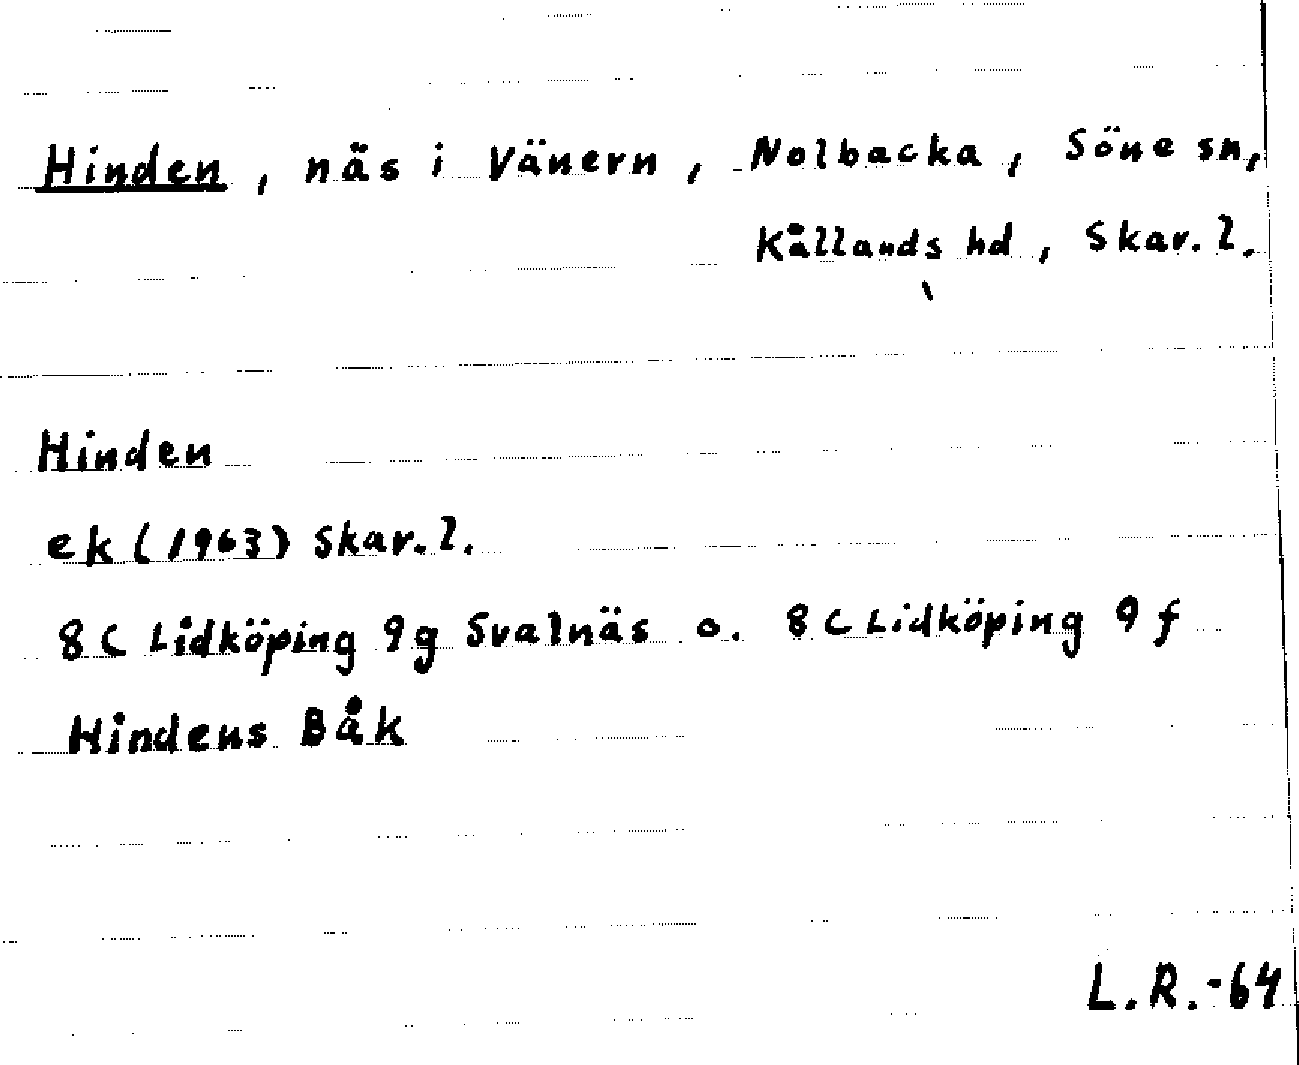 Hinden, näs i Vänern, Nolbacka, Söne sn,
Kållands hd, Skar. l.
Hinden
ek (1963) Skar. l.
8 C Lidköping 9g Svalnäs o. 8 C Lidköping 9 f
Hindens Båk
L.R.-64